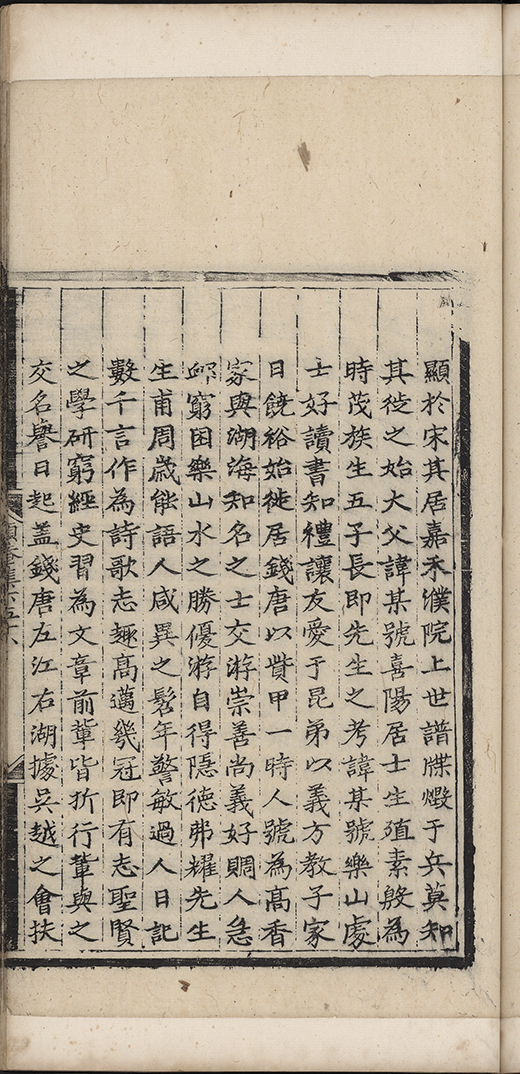 顯於宋其居嘉禾濮院上世譜牒燬于兵莫知
其徙之始大父諱某號喜陽居士生殖素殷為
時茂族生五子長即先生之考諱某號樂山處
士好讀書知禮讓友愛于昆弟以義方教子家
日饒裕始徙居錢唐以貲甲一時人號為高香
家與湖海知名之士交游崇善尚義好賙人急
卹窮困樂山水之勝優游自得隱德弗耀先生
生甫周歲能語人咸異之髫年警敏過人日記
數千言作為詩歌志趣高邁幾冠即有志聖賢
之學研窮經史習為文章前輩皆折行輩與之
交名譽日起盖錢唐左江右湖據吳越之會扶